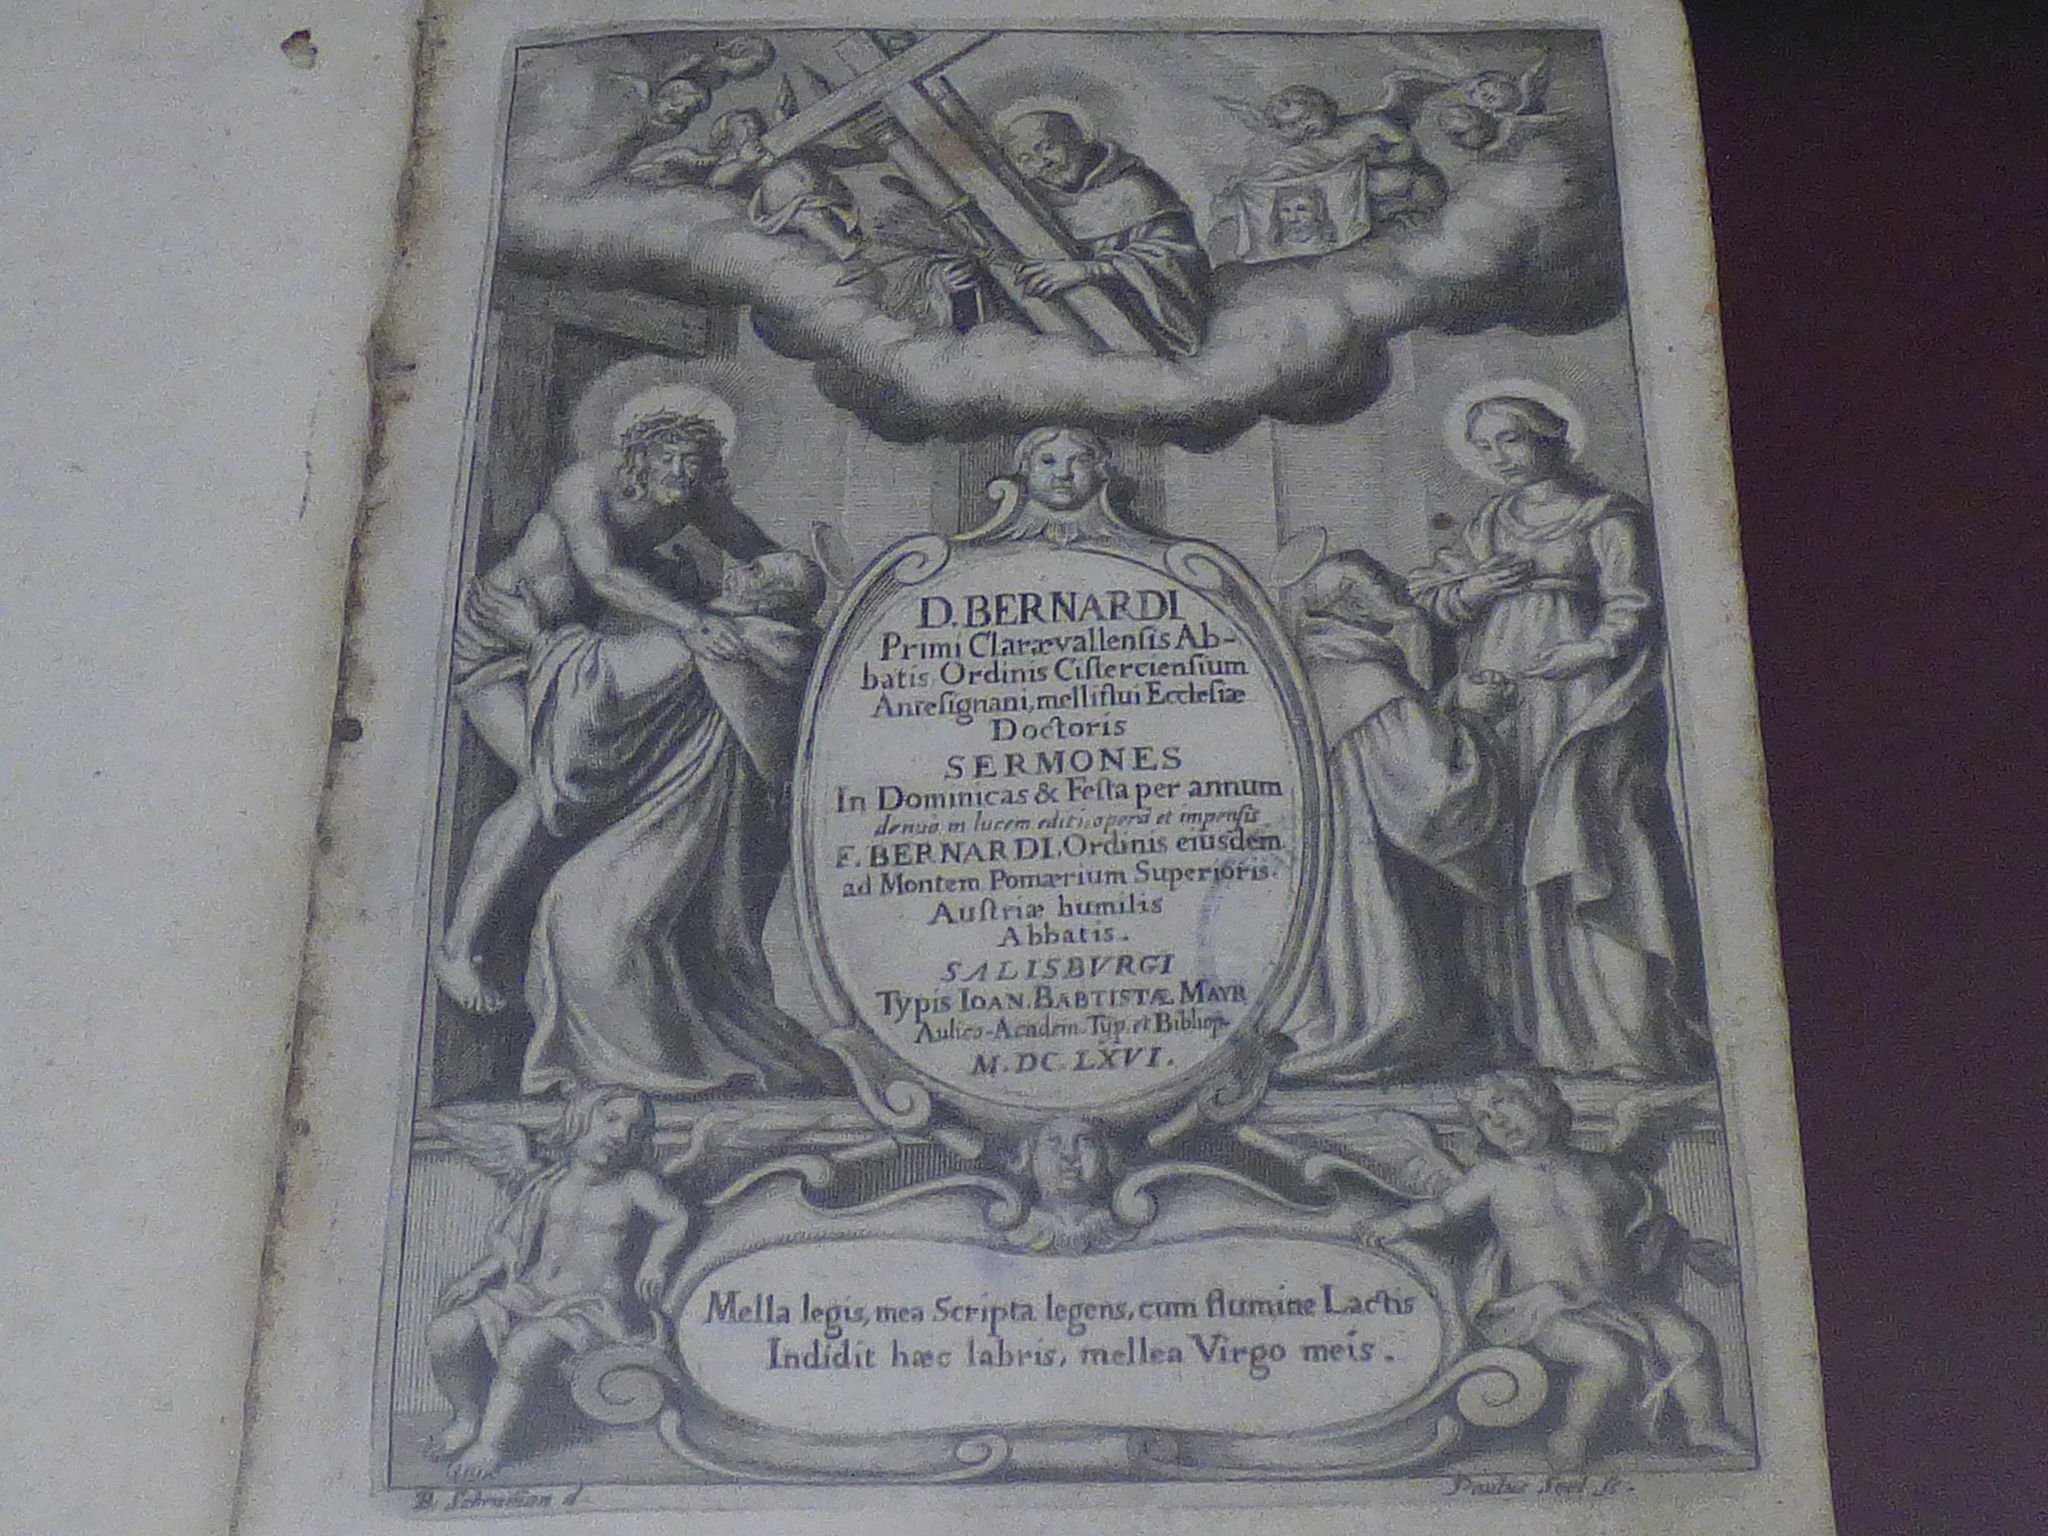 D. BERNARDI
Primi Clarævallensis Ab-
batis Ordinis Cisterciensium
Antesignani, melliflui Ecclesiæ
Doctoris
SERMONES
In Dominicas & Festa per annum
denuò in lucem editi, operâ et impensis
F. BERNARDI, Ordinis eiusdem
ad Montem Pomærium Superioris.
Austriæ humilis
Abbatis.
SALISBVRGI
Typis IOAN. BABTISTÆ MAYR
Aulico-Academ. Typ. et Bibliop.
M. DC. LXVI.
Mella legis, mea Scripta legens, cum flumine Lactis
Indidit hæc labris, mellea Virgo meis.
d.
Paulus Seel